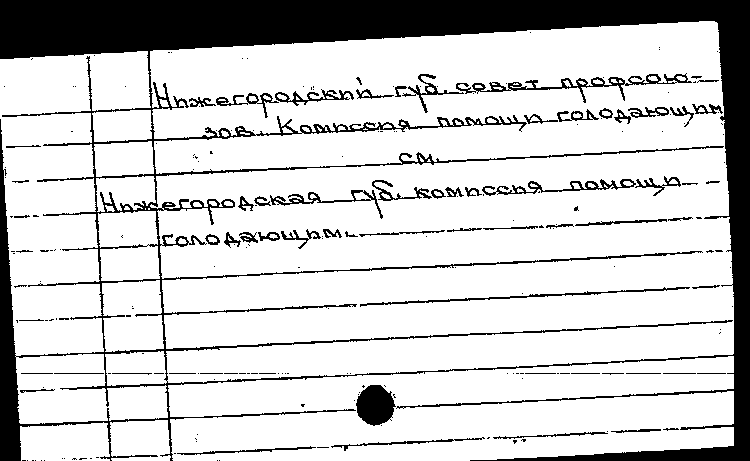 Нижегородский губ. совет профсою-
зов. Комиссия помощи голодающим
см.
Нижегородская губ. комиссия помощи
голодающим.